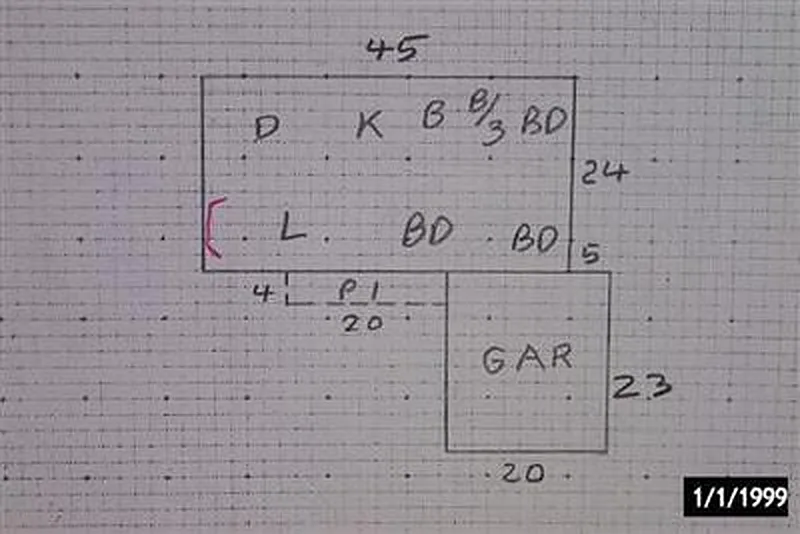 45
D K B B/3 BD
24
L BD BD
5
4 P1
20
GAR
23
20
1/1/1999